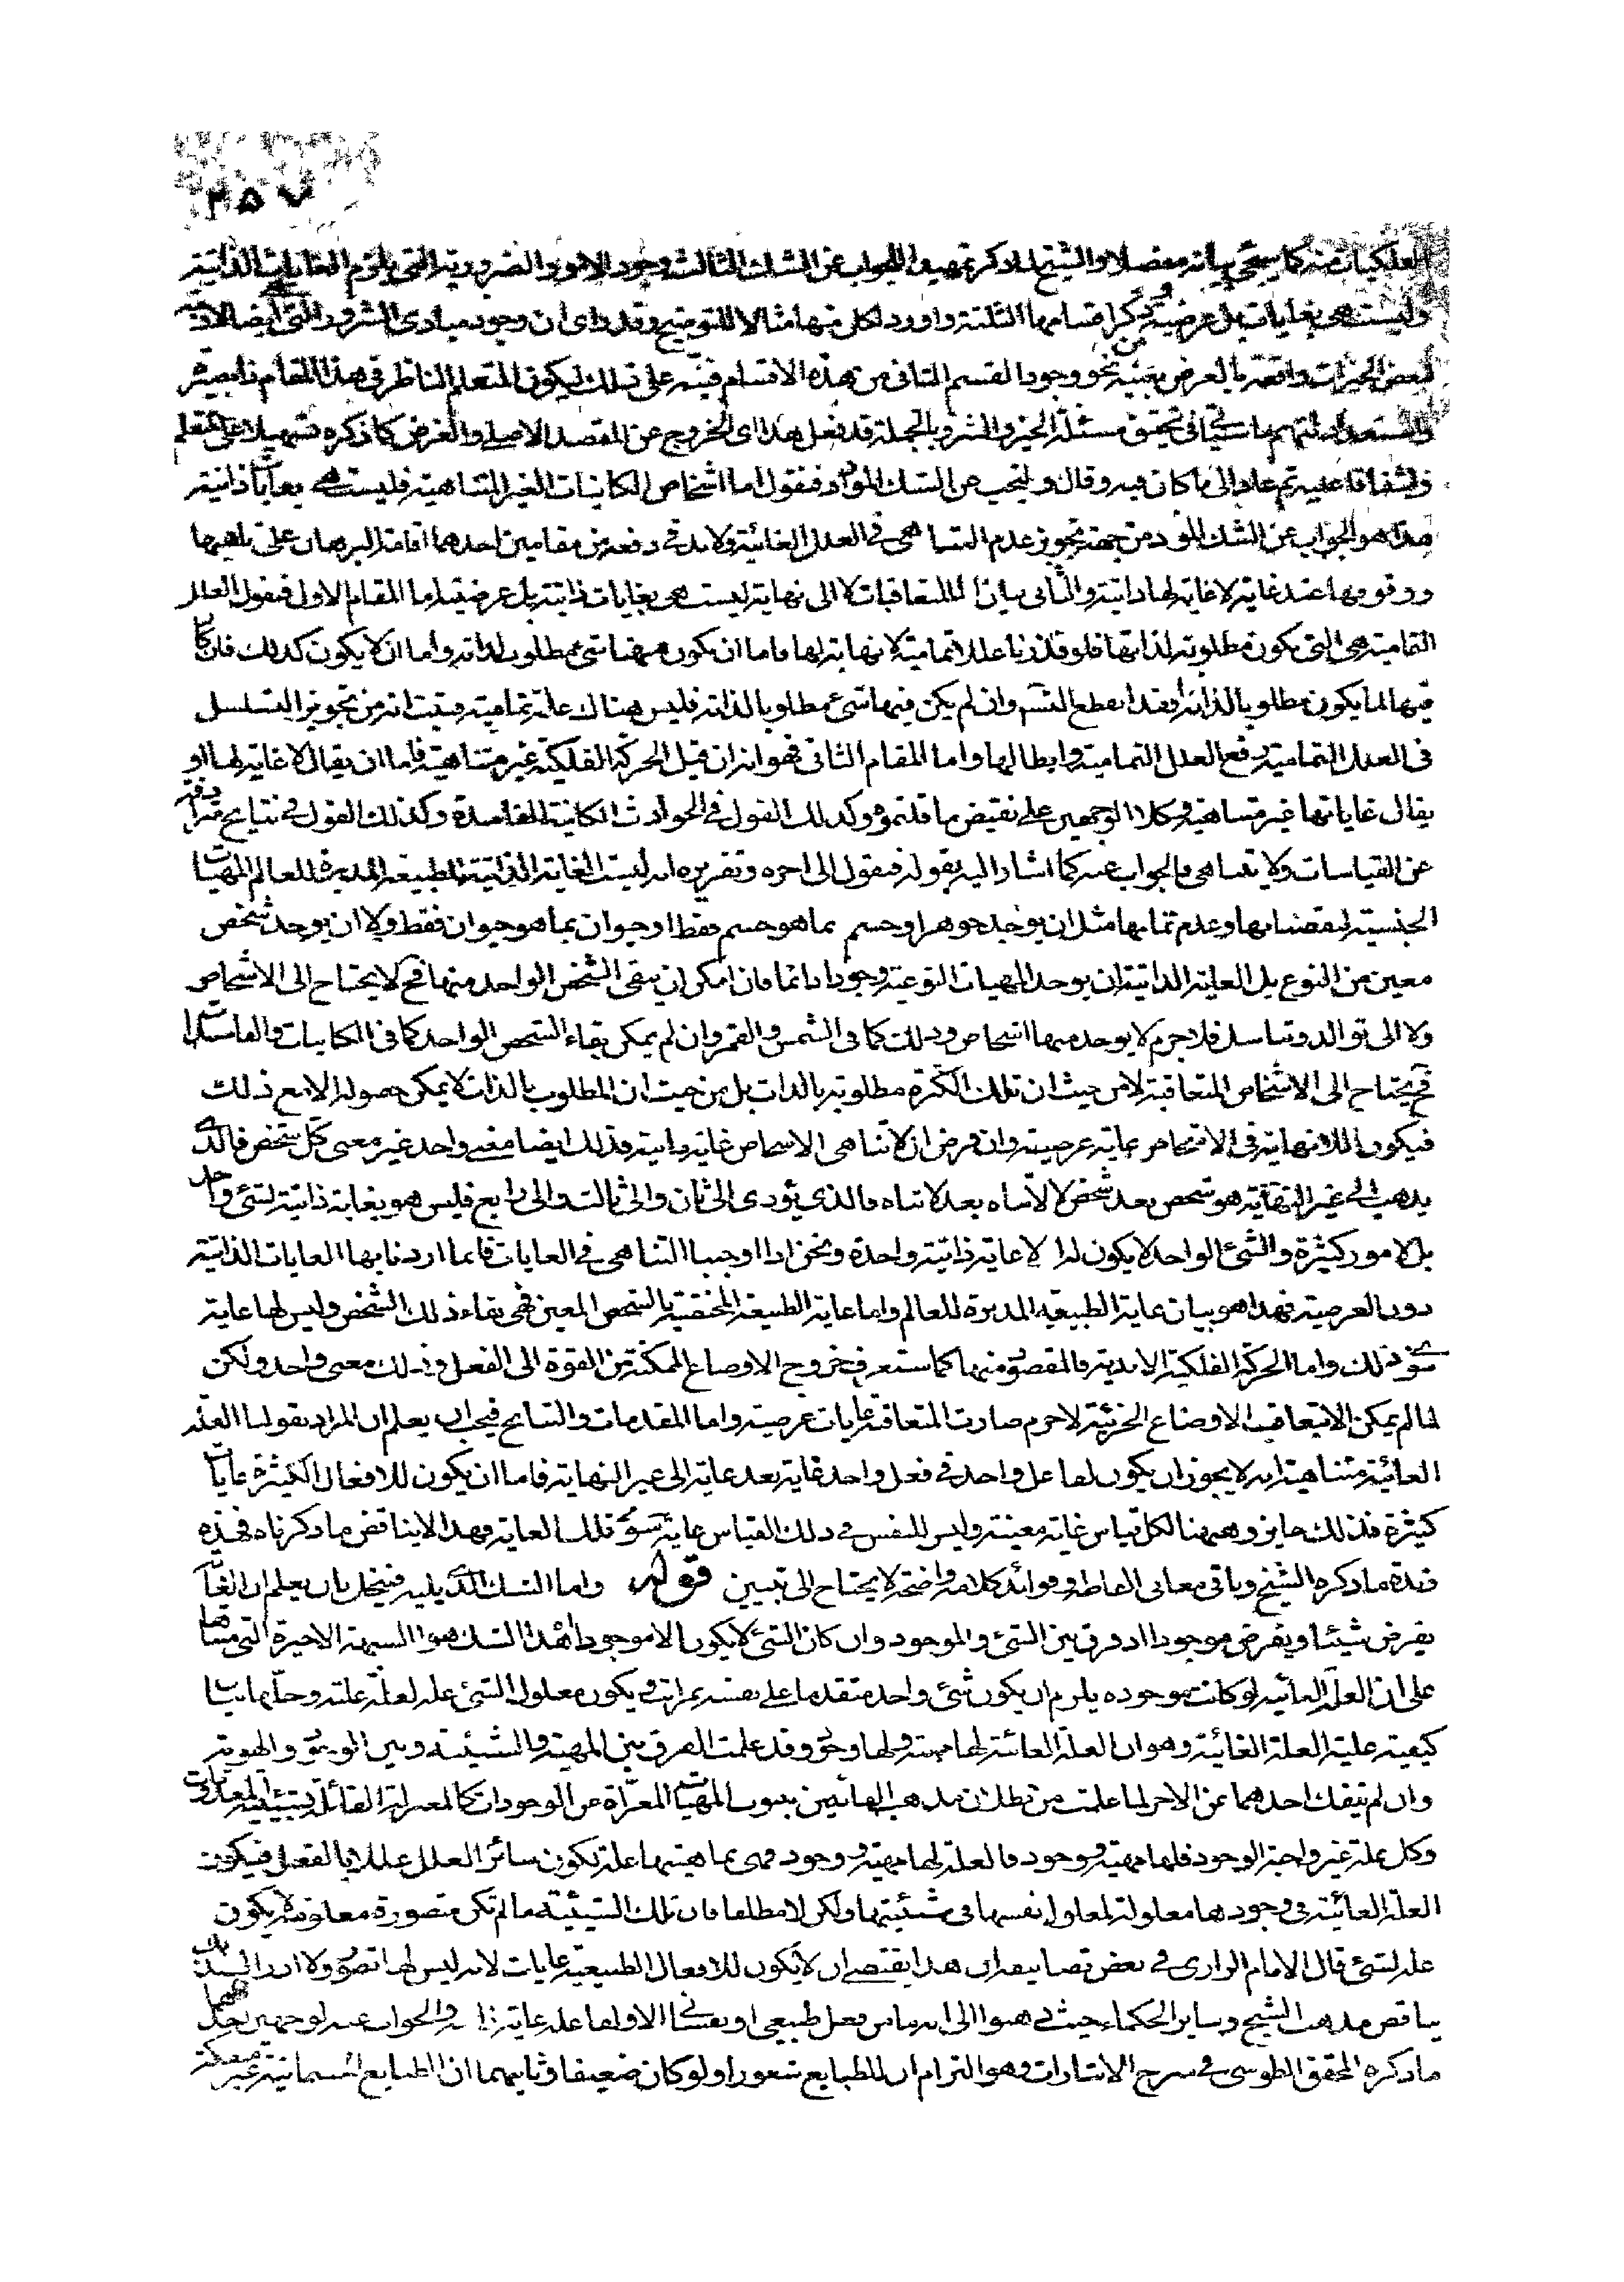 ٢٥٧
الفلكيات منه كما سيجئ بيانه مفصلا والشيخ لما ذكر تمهيدا للجواب عن الشك الثالث وجود الامور الضرورية التي يلزم الغايات الذاتية
وليست هي بغايات بل عرضية وذكر اقسامها الثلثة واورد لكل منها مثالا للتوضيح وقد راى ان وجود مبادى الشرور التي ايضا
لبعض الخيرات واقعة بالعرض بعينه نحو وجود القسم الثاني من هذه الاقسام فنبه على ذلك ليكون المتعلم الناظر في هذا المقام ذا بصيرة
واستعداد لتفهم ما سيجئ في تحقيق مسئلة الخير والشر وبالجملة قد فعل هذا اى الخروج عن المقصد الاصلي والغرض كما ذكره تسهيلا على المتعلم
واشفاقا عليه ثم عاد الى ما كان فيه وقال ولنجب عن الشك المورد فنقول اما اشخاص الكاينات الغير المتناهية فليست هي بغايات ذاتية
هذا هو الجواب عن الشك المورد من جهة تجويز عدم التناهى في العلل الغائية ولابد في دفعه من مقامين احدهما اقامة البرهان على تناهيها
ووقوفها عند غاية لا غاية لها ذاتية والثاني بيان ان المتعاقبات لا الى نهاية ليست هي بغايات ذاتية بل عرضية اما المقام الاول فنقول العلل
التمامية هي التي يكون مطلوبة لذاتها فلو قدرنا عللا تمامية لا نهاية لها فاما ان يكون هيهنا شئ مطلوب لذاته واما ان لا يكون كذلك فان كان
فيها ما يكون مطلوبا لذاته فقد انقطع التس وان لم يكن فيها شئ مطلوبا لذاته فليس هناك علة تمامية فثبت انه من تجويز التسلسل
في العلل التمامية رفع العلل التمامية وابطالها واما المقام الثاني فهو انه ان قيل الحركة الفلكية غير متناهية فاما ان يقال لا غاية لها او
يقال غاياتها غير متناهية وكلا الوجهين على نقيض ما قلتموه وكذلك القول في الحوادث الكاينة الفاسدة وكذلك القول في نتايج مترادفة
عن القياسات ولا تتناهى فالجواب عنه كما اشار اليه بقوله فنقول الى اخره وتقريره انه ليست الغاية الذاتية للطبيعة المدبرة للعالم المهيات
الجنسية لنقصانها وعدم تمامها مثل ان يوجد جوهرا وجسم بما هو جسم فقط او حيوان بما هو حيوان فقط ولا ان يوجد شخص
معين من النوع بل الغاية الذاتية ان يوجد المهيات النوعية وجودا دائما فان امكن ان يبقى الشخص الواحد منها فح لا يحتاج الى الاشخاص
ولا الى توالد وتناسل فلا جرم لا يوجد منها اشخاص وذلك كما في الشمس والقمر وان لم يمكن بقاء الشخص الواحد كما في الكاينات والفاسدات
فح يحتاج الى الاشخاص المتعاقبة لا من حيث ان تلك الكثرة مطلوبة بالذات بل من حيث ان المطلوب بالذات لا يمكن حصوله الا مع ذلك
فيكون اللانهاية في الاشخاص غاية عرضية وان فرض ان لا تناهى الاشخاص غاية ذاتية فذلك ايضا معنى واحد غير معنى كل شخص فالذى
يذهب الى غير النهاية هو شخص بعد شخص لا لاتناه بعد لاتناه فالذي يؤدى الى ثان والى ثالث والى رابع فليس هو بغاية ذاتية لشئ واحد
بل لامور كثيرة والشئ الواحد لا يكون له الا غاية ذاتية واحدة ونحن اذا اوجبنا التناهى في الغايات فانما اردنا بها الغايات الذاتية
دون العرضية فهذا هو بيان غاية الطبيعة المدبرة للعالم واما غاية الطبيعة المختصة بالشخص المعين فهي بقاء ذلك الشخص وليس لها غاية
سوى ذلك واما الحركة الفلكية الابدية فالمقصود منها كما ستعرف خروج الاوضاع الممكنة من القوة الى الفعل وذلك معنى واحد ولكن
لما لم يمكن الا بتعاقب الاوضاع الجزئية لا جرم صارت المتعاقبة غايات عرضية واما المقدمات والنتايج فيجب ان يعلم ان المراد بقولنا العلة
الغائية متناهية انه لا يجوز ان يكون لفاعل واحد في فعل واحد غاية بعد غاية الى غير النهاية فاما ان يكون للافعال الكثيرة غايات
كثيرة فذلك جايز وهيهنا لكل قياس غاية معينة وليس للنفس في ذلك القياس غاية سوى تلك الغاية فهذا لا يناقض ما ذكرناه فهذه
زبدة ما ذكره الشيخ وباقي معاني الفاظه وفوائد كلامه واضحة لا يحتاج الى تبيين قوله واما الشك الذى يليه فينحل بان يعلم ان الغاية
يفرض شيئا ويفرض موجودا اذ فرق بين الشئ والموجود وان كان الشئ لا يكون الا موجودا هذا الشك هو الشبهة الاخيرة التي مبناها
على ان العلة الغائية لو كانت موجوده يلزم ان يكون شئ واحد متقدما على نفسه بمراتب ويكون معلول الشئ علة لعلة علته وحلها ببيان
كيفية علية العلة الغائية وهو ان العلة الغائية لها مهية ولها وجود وقد علمت الفرق بين المهية والشيئية وبين الوجود والهوية
وان لم ينفك احدهما عن الاخر لما علمت من بطلان مذهب القائلين بثبوت المهيات المعراة عن الوجودات كالمعتزلة القائلة بشيئية المعدومات
وكل علة غير واجبة الوجود فلها مهية ووجود فالعلة لها مهية ووجود فهى بماهيتها علة تكون سائر العلل عللا بالفعل فيكون
العلة الغائية في وجودها معلولة لمعلول نفسها في شيئيتها ولكن لا مطلقا فان تلك الشيئية ما لم تكن متصورة معلومة لا يكون
علة لشئ قال الامام الرازى في بعض تصانيفه ان هذا يقتضى ان لا يكون للافعال الطبيعية غايات لانه ليس لها تصور ولا ادراك
يناقض مذهب الشيخ وساير الحكماء حيث ذهبوا الى انه ما من فعل طبيعي او نفساني الا ولفاعله غاية والجواب عنه لوجهين احدهما
ما ذكره المحقق الطوسى في شرح الاشارات وهو التزام ان للطبايع شعورا ولو كان ضعيفا وثانيهما ان الطبايع الجسمانية غير منفكة